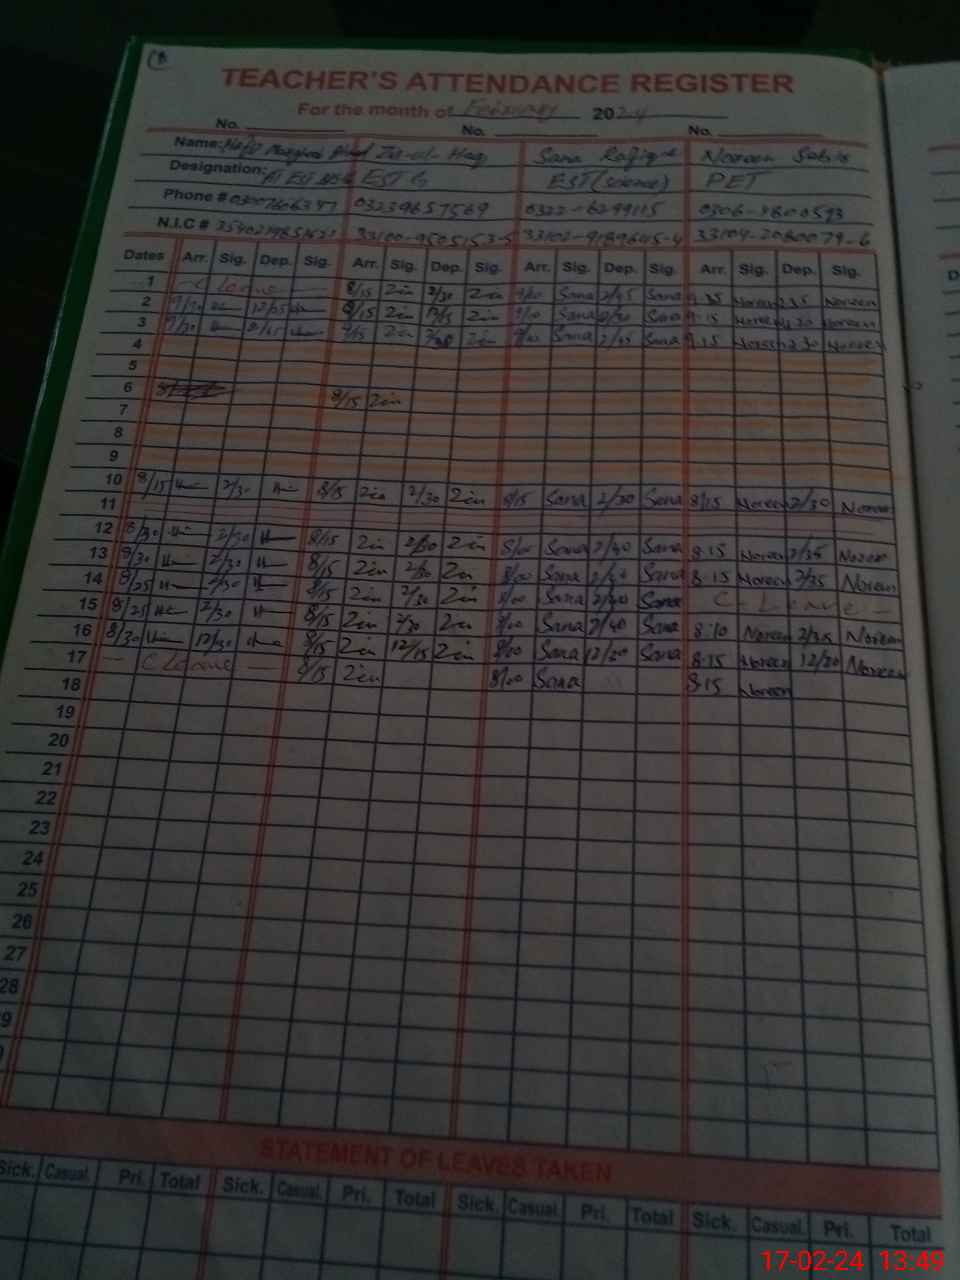 TEACHER'S ATTENDANCE REGISTER
For the month of February 2024
No. No. No.
Name: Zia-ul-Haq Sana Rafique Noreen Sabir
Designation: EST EST(science) PET
Phone # 03007606347 03239657569 0322-6299115 0306-7800593
N.I.C # 33100-9505153-5 33102-9189645-4 33104-2080079-6
Dates Arr. Sig. Dep. Sig. Arr. Sig. Dep. Sig. Arr. Sig. Dep. Sig. Arr. Sig. Dep. Sig.
1 C Leave 8/15 Zia 2/30 Zia 9/00 Sana 2/45 Sana Noreen Noreen
2 8/15 Zia Zia 9/00 Sana Sana 9.15 Noreen Noreen
3 Zia Zia 9/00 Sana 2/45 Sana 9.15 Noreen 2.30 Noreen
4
5
6 8/15 Zia
7
8
9
10 8/15 2/30 8/15 Zia 2/30 Zia 8/15 Sana 2/30 Sana 8/15 Noreen 2/30 Noreen
11
12 8/30 2/30 8/15 Zia 2/30 Zia 8/00 Sana 2/40 Sana 8.15 Noreen 2/35 Noreen
13 8/30 2/30 8/15 Zia 2/30 Zia 8/00 Sana 2/40 Sana 8.15 Noreen 2/35 Noreen
14 8/25 2/30 8/15 Zia 2/30 Zia 8/00 Sana 2/40 Sana C-Leave
15 8/25 2/30 8/15 Zia 2/30 Zia 8/00 Sana 2/40 Sana 8:10 Noreen 2/35 Noreen
16 8/30 12/30 8/15 Zia 12/15 Zia 8/00 Sana Sana 8.15 Noreen 12/20 Noreen
17 C Leave 8/15 Zia 8/00 Sana 8.15 Noreen
18
19
20
21
22
23
24
25
26
27
28
STATEMENT OF LEAVES TAKEN
Sick. Casual. Pri. Total Sick. Casual. Pri. Total Sick. Casual. Pri. Total Sick. Casual. Pri. Total
17-02-24 13:49